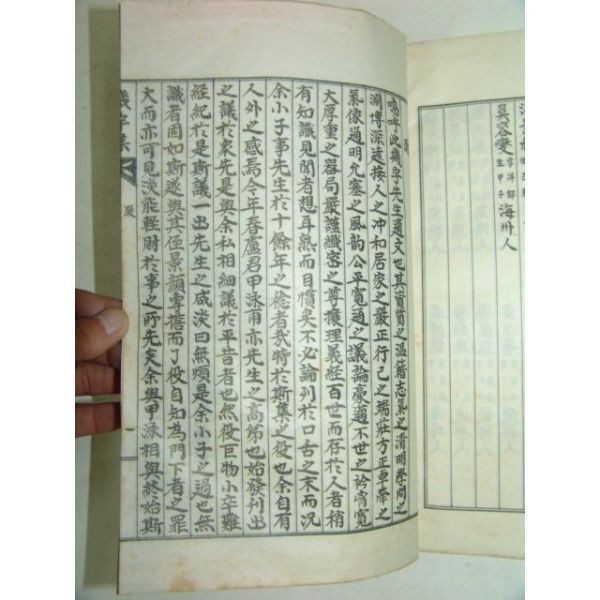 吳容燮 字洋部 生甲子 海州人
嗚呼此幾宇先生遺文也其資質之溫籍志氣之清明學問之
淵博深遠接人之冲和居家之嚴正行己之端莊方正卓犖之
氣像通明允塞之風韵公平寬通之議論豪邁不世之衿宵寬
大厚重之器局嚴謹纖密之尊攘理義經百世而存於人者稍
有知識見聞者想耳熟而目慣矣不必論列於口舌之末而況
余小子事先生於十餘年之稔者哉特於斯集之役也余自有
人外之感焉今年春盧君甲泳甫亦先生之高弟也始發刊出
之議於衆先是與余私相細議於平昔者也然役巨物小卒難
經紀於是斯議一出先生之咸淡曰無煩是余小子之過也無
識者固如斯遂與其侄景顔專擔而了役自知為門下者之罪
大而亦可見淡能輕財於事之所先矣余與甲泳相與終始斯
幾宇集 跋